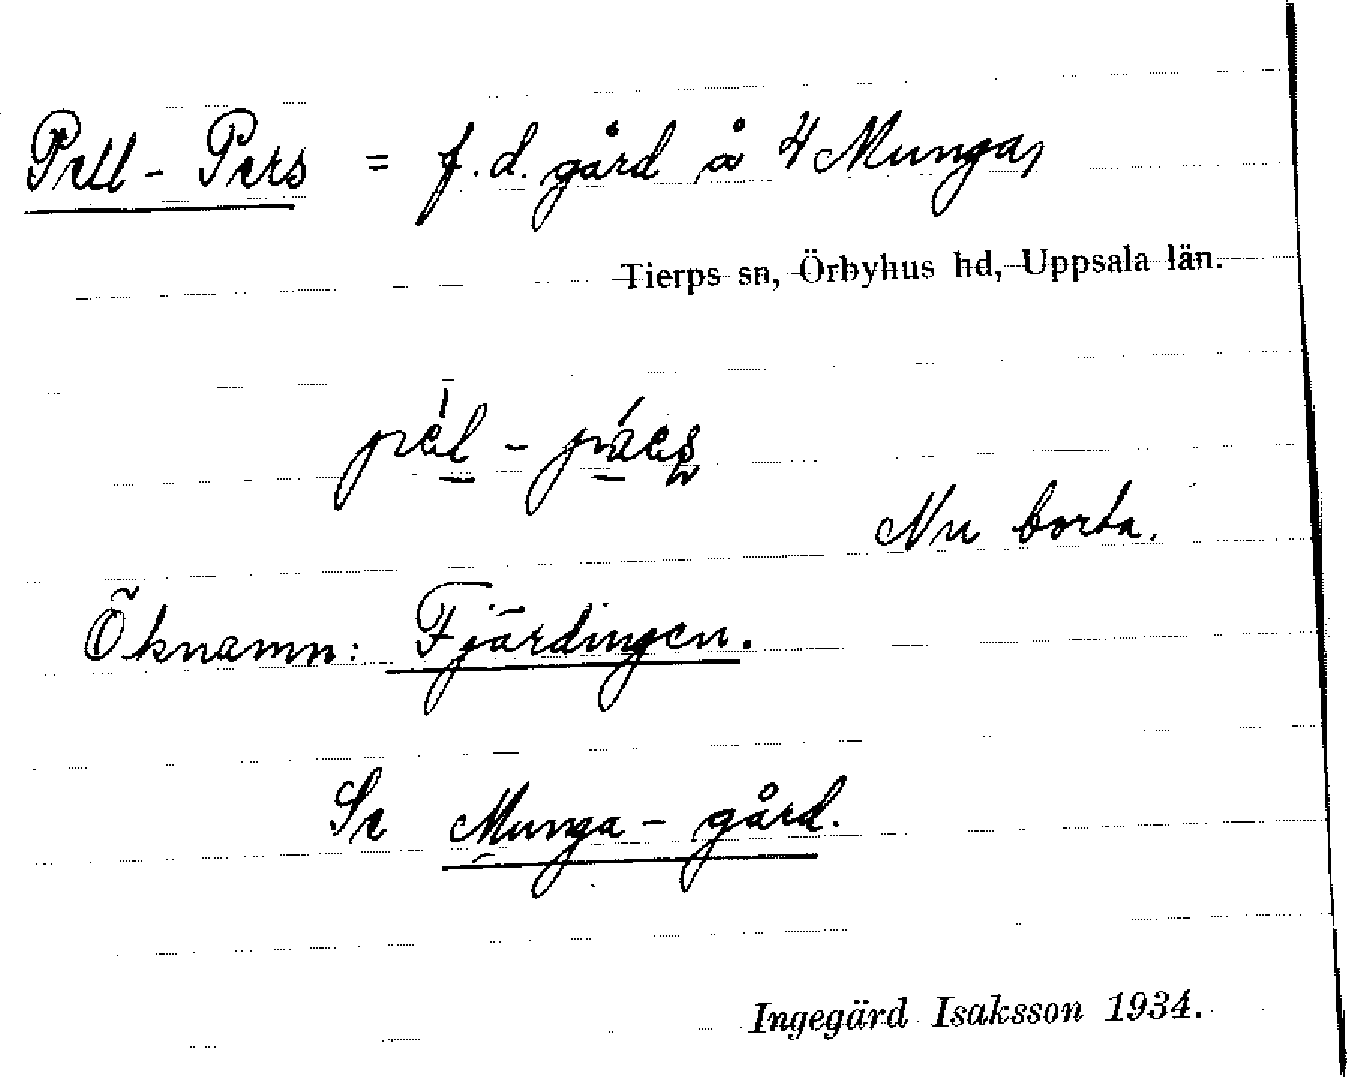 Pell - Pers = f.d. gård å 4 Munga,
Tierps sn, Örbyhus hd, Uppsala län.
Nu borta.
Öknamn: Fjärdingen.
Se Munga - gård.
Ingegärd Isaksson 1934.